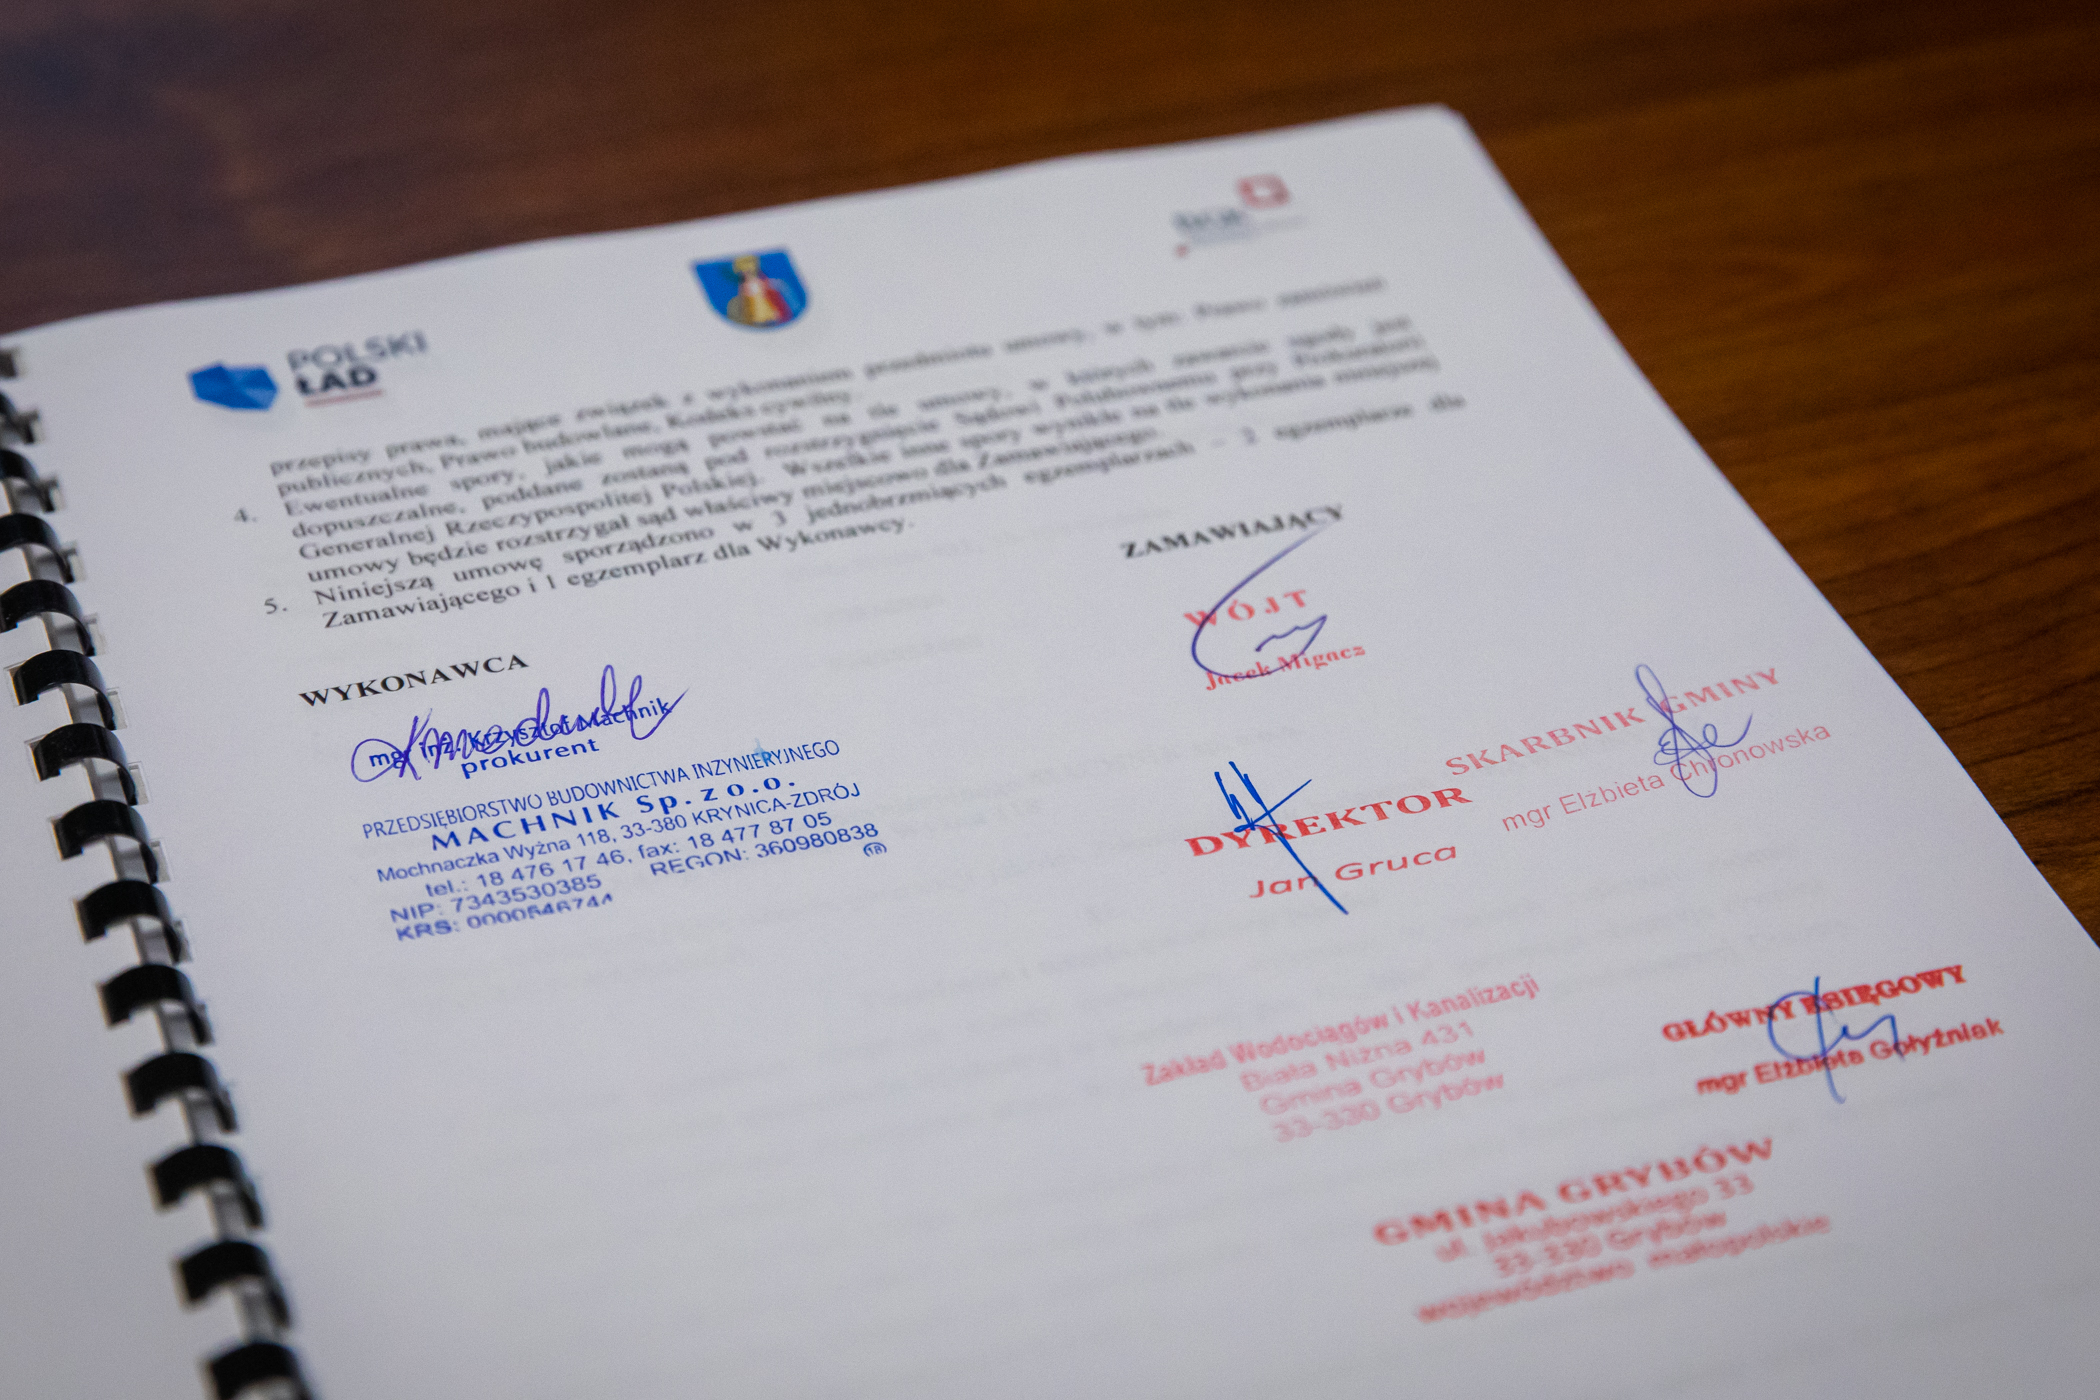 POLSKI
ŁAD
przepisy prawa, mające związek z wykonaniem przedmiotu umowy, w tym: Prawo zamówień
publicznych, Prawo budowlane, Kodeks cywilny.
4. Ewentualne spory, jakie mogą powstać na tle umowy, w których zawarcie ugody jest
dopuszczalne, poddane zostaną pod rozstrzygnięcie Sądowi Polubownemu przy Prokuratorii
Generalnej Rzeczypospolitej Polskiej. Wszelkie inne spory wynikłe na tle wykonania niniejszej
umowy będzie rozstrzygał sąd właściwy miejscowo dla Zamawiającego.
5. Niniejszą umowę sporządzono w 3 jednobrzmiących egzemplarzach – 2 egzemplarze dla
Zamawiającego i 1 egzemplarz dla Wykonawcy.
WYKONAWCA
mgr inż. Krzysztof Machnik
prokurent
PRZEDSIĘBIORSTWO BUDOWNICTWA INŻYNIERYJNEGO
MACHNIK Sp. z o.o.
Mochnaczka Wyżna 118, 33-380 KRYNICA-ZDRÓJ
tel.: 18 476 17 46, fax: 18 477 87 05
NIP: 7343530385 REGON: 360980838
KRS: 0000546744
(18)
ZAMAWIAJĄCY
WÓJT
Jacek Migacz
SKARBNIK GMINY
mgr Elżbieta Chronowska
DYREKTOR
Jan Gruca
Zakład Wodociągów i Kanalizacji
Biała Niżna 431
Gmina Grybów
33-330 Grybów
GŁÓWNY KSIĘGOWY
mgr Elżbieta Gołyźniak
GMINA GRYBÓW
ul. Jakubowskiego 33
33-330 Grybów
województwo małopolskie